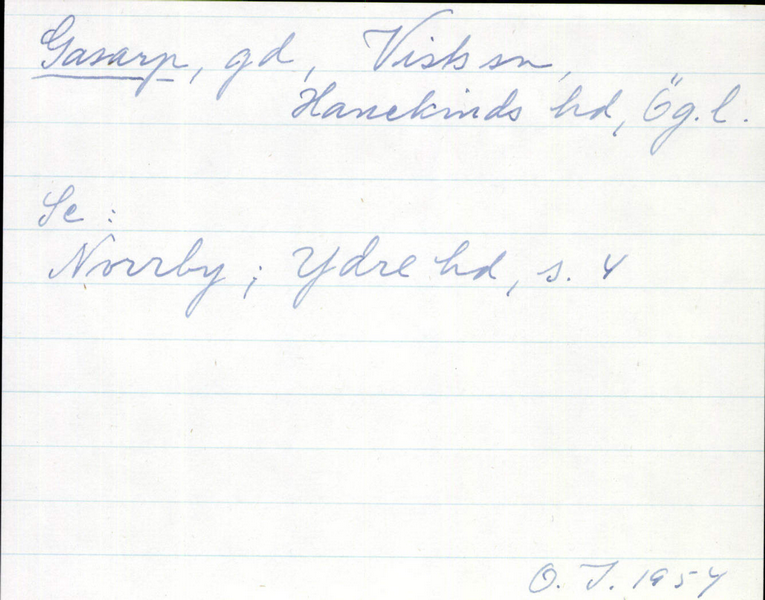 Gasarp, gd, Vists sn,
Hanekinds hd, Ög.l.
Se:
Norrby; Ydre hd, s. 4
O. J. 1954